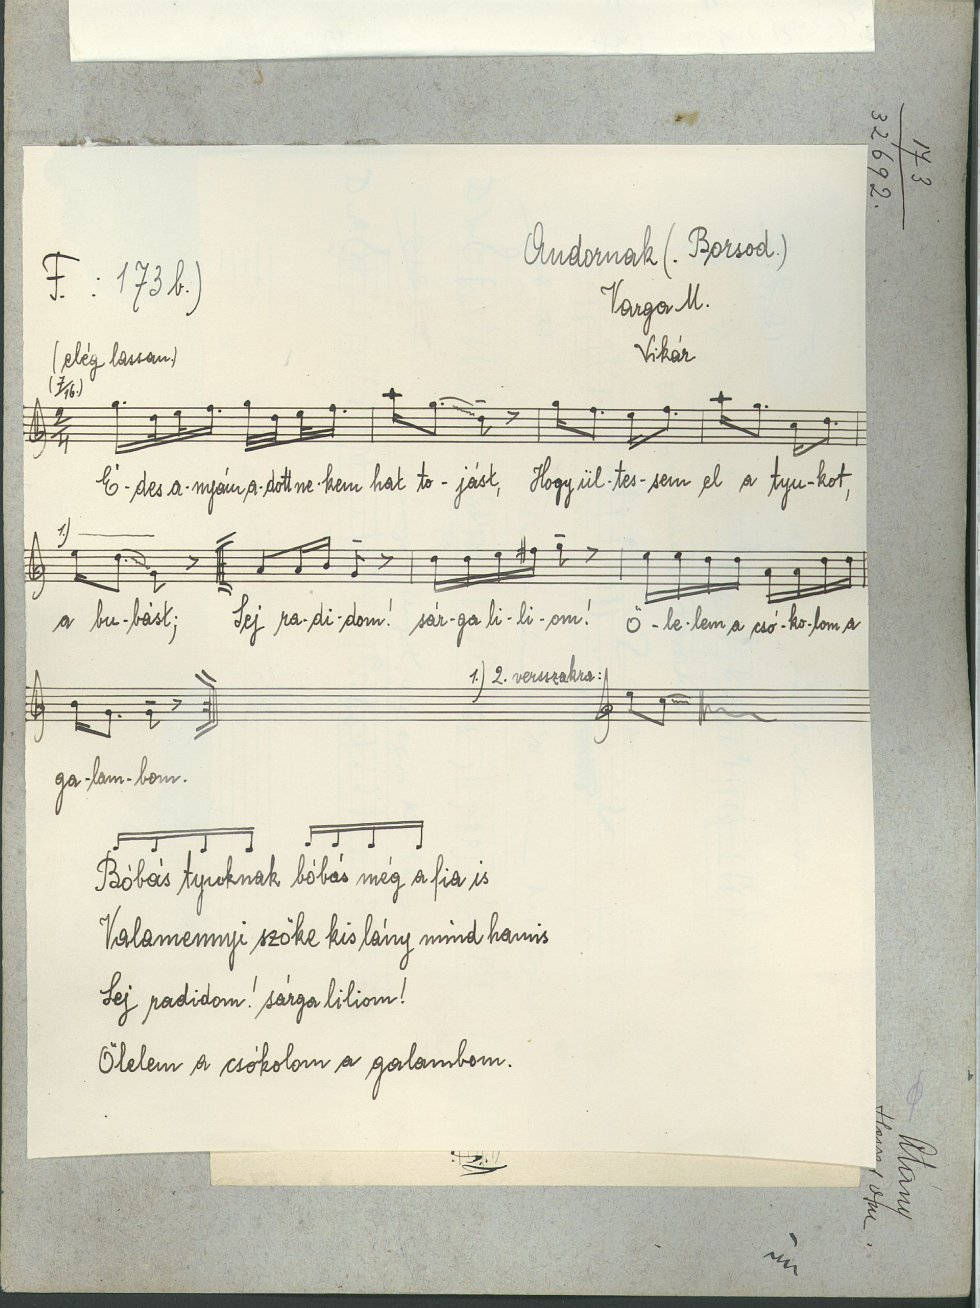 173
32692.
Andornak (. Borsod.)
F. : 173 b.)
Varga M.
Vikár
(elég lassan.)
(7/16.)
2/4
É-des a-nyám a-dott ne-kem hat to-jást, Hogy ül-tes-sem el a tyu-kot,
1.)
a bu-bást; Sej ra-di-dom! sár-ga li-li-om! Ö-le-lem a csó-ko-lom a
1.) 2. versszakra:
ga-lam-bom.
Bóbás tyuknak bóbás még a fia is
Valamennyi szöke kis lány mind hamis
Sej radidom! sárga liliom!
Ölelem a csókolom a galambom.
Átány